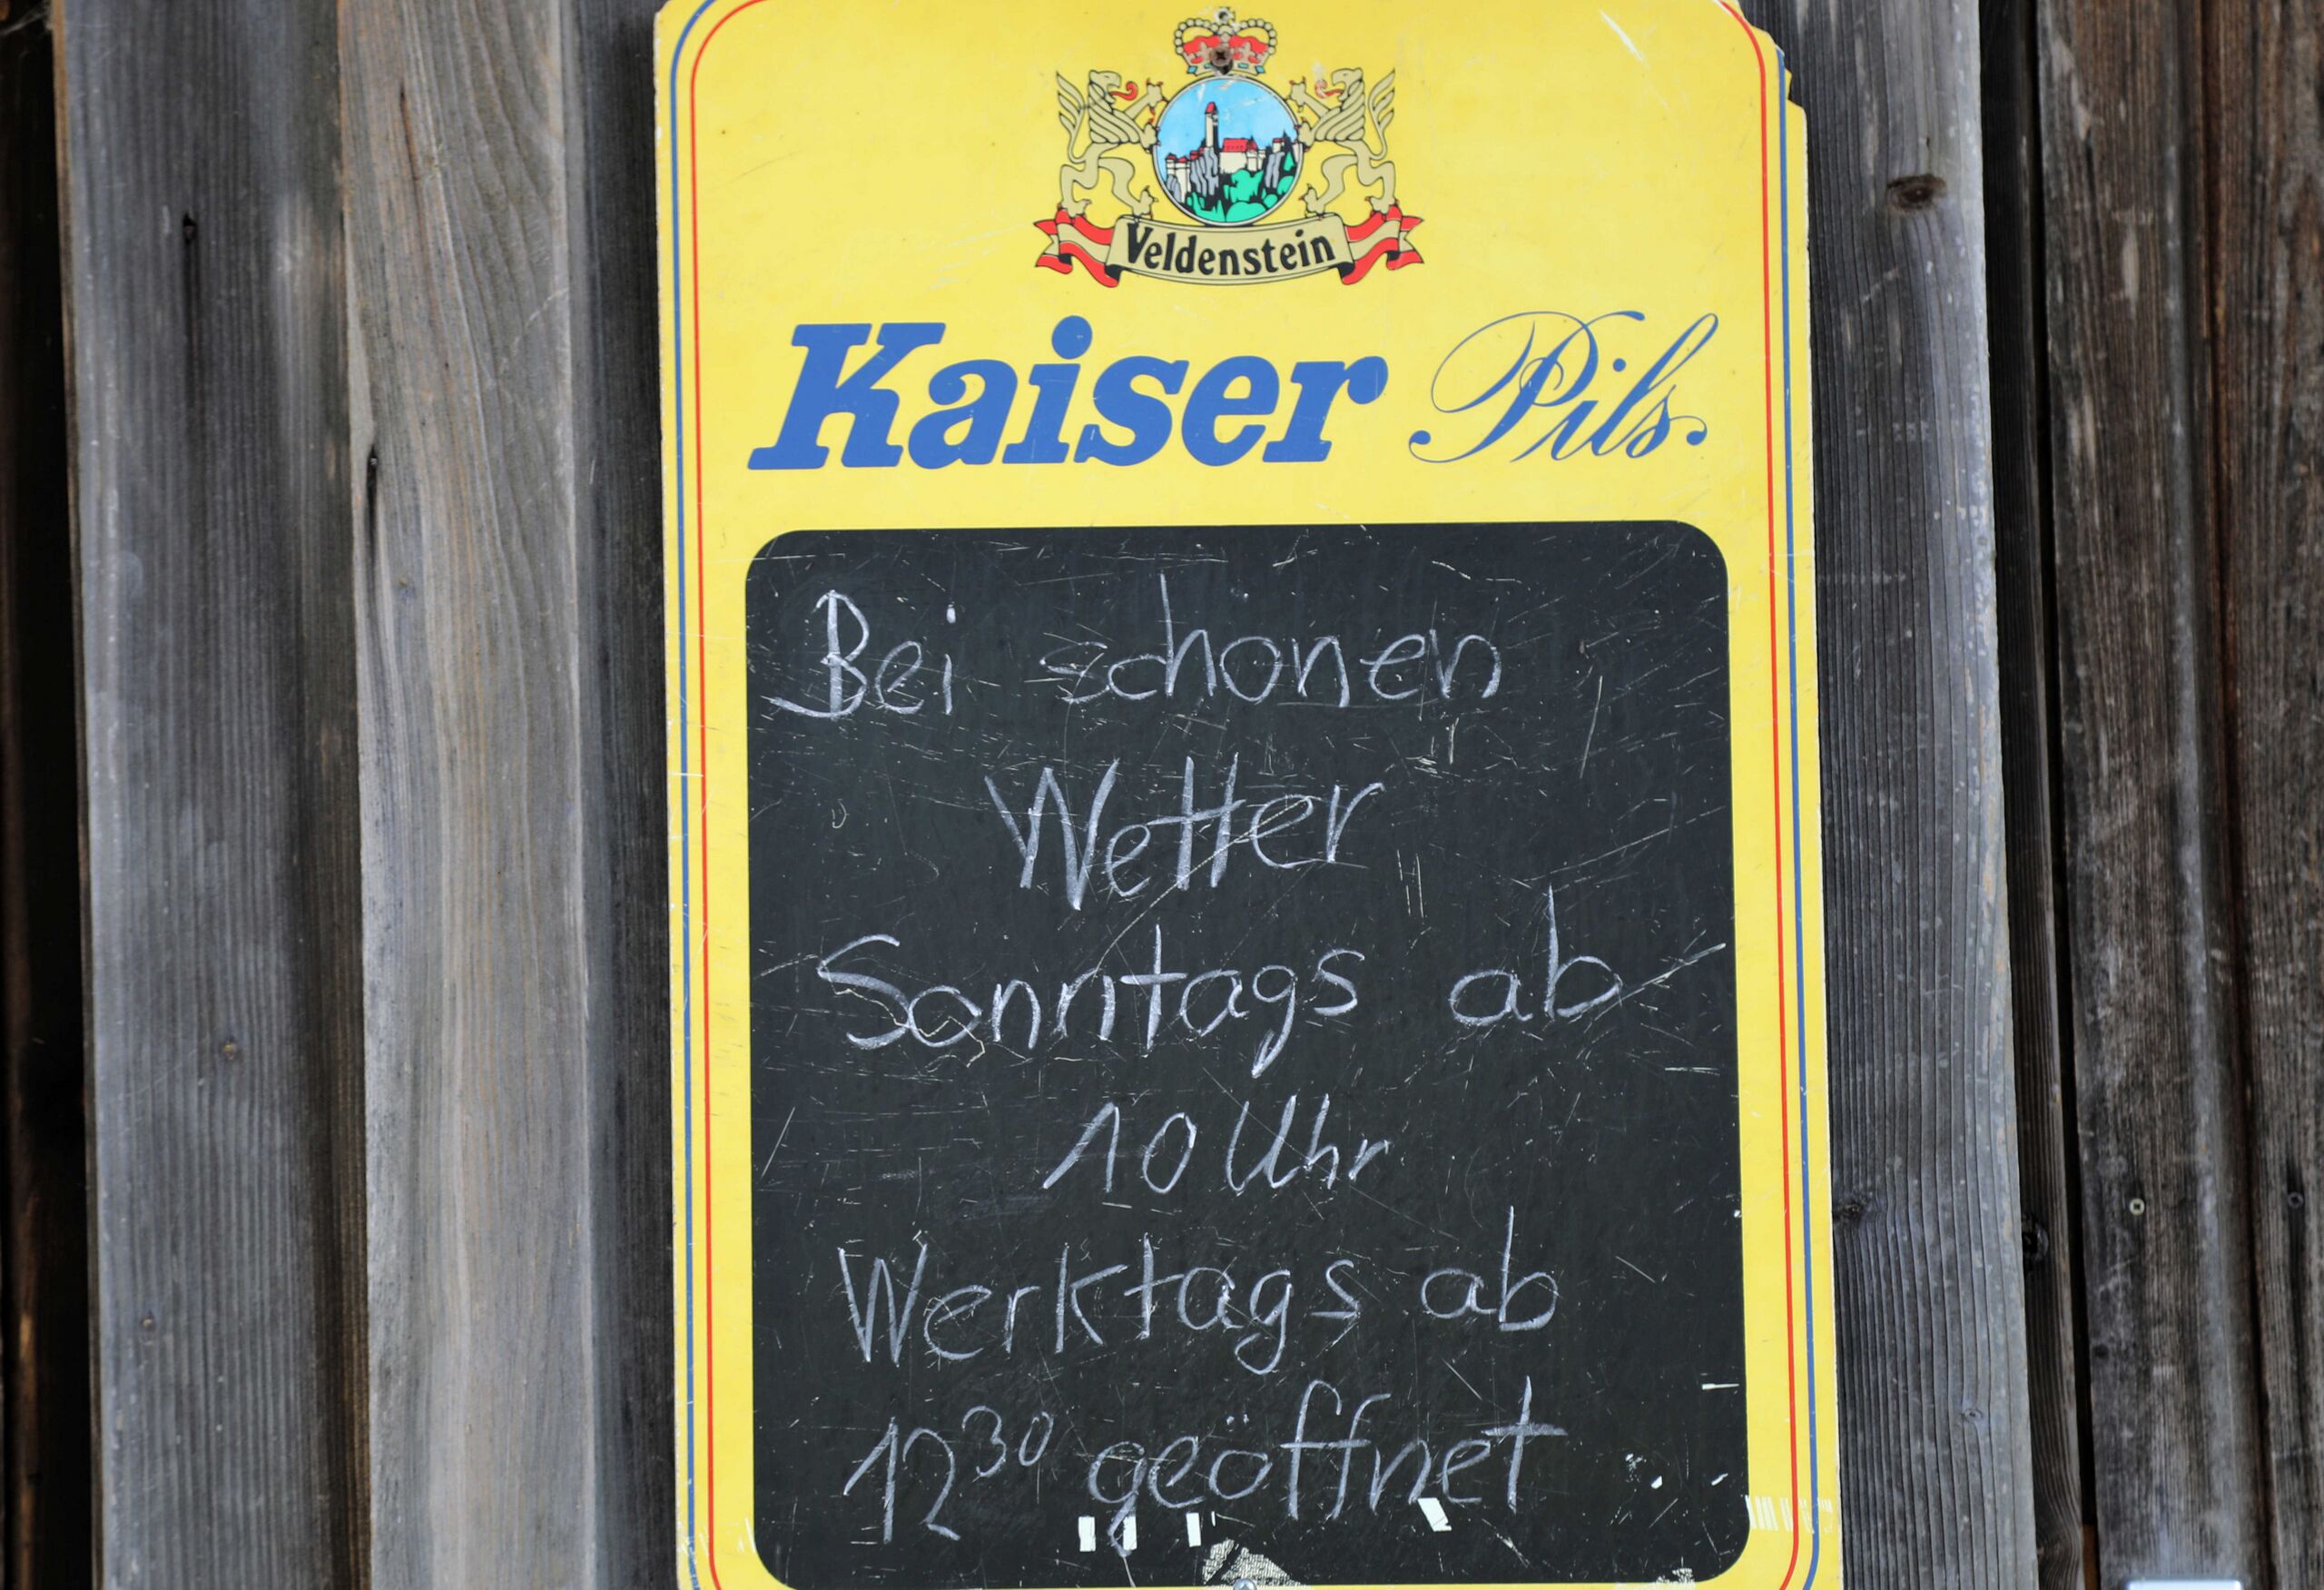 Veldenstein
Kaiser Pils.
Bei schonen
Wetter
Sonntags ab
10 Uhr
Werktags ab
12³⁰ geöffnet